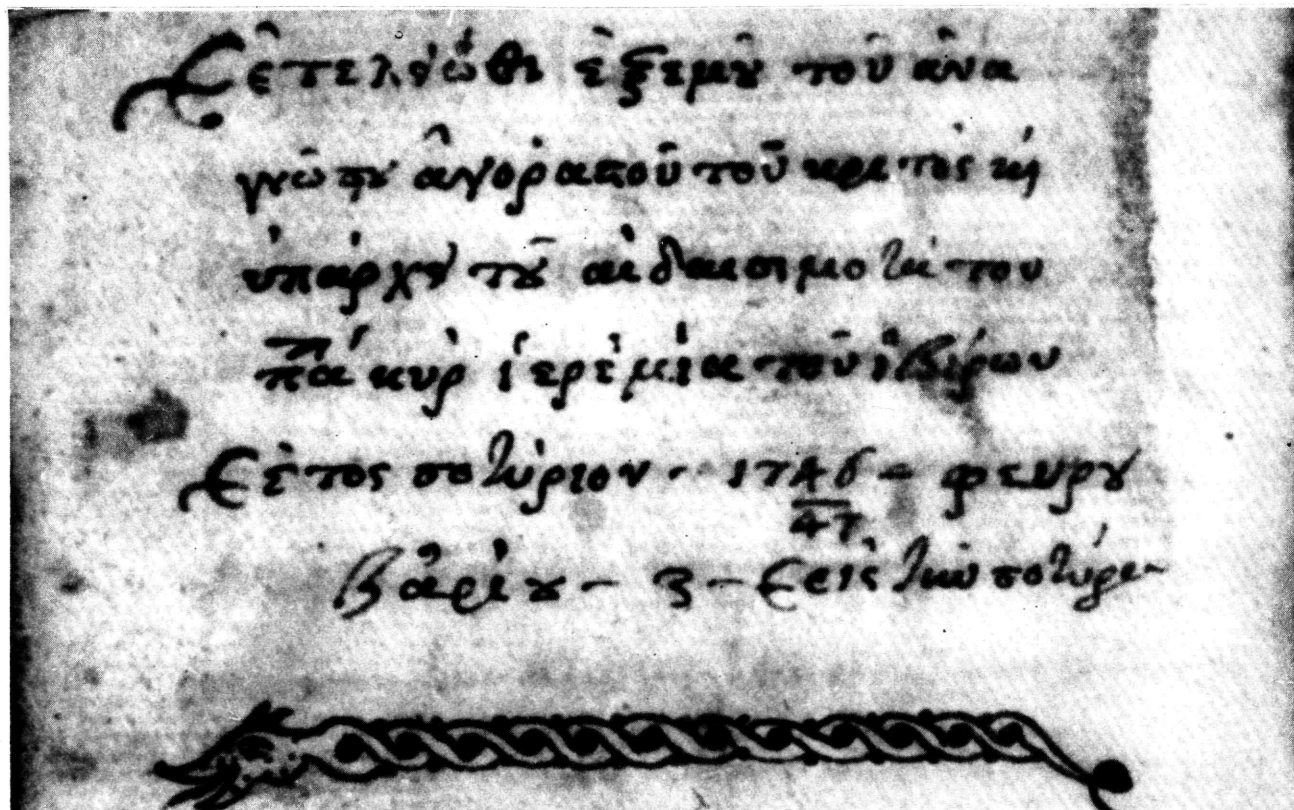 Ἐτελειώθι ἐξεμοῦ τοῦ ἀνα
γνώστου ἀγοραποῦ τοῦ κριτὸς κὴ
ὑπάρχει τοῦ αἰδαισιμοτά του
πᾶ κυρ ἱερεμία τοῦ ἰβίρων
ἔτος σοτύριον - 1746 - φευρου
47
βαρίου - 3 - εἰς τὴν σοτύρα